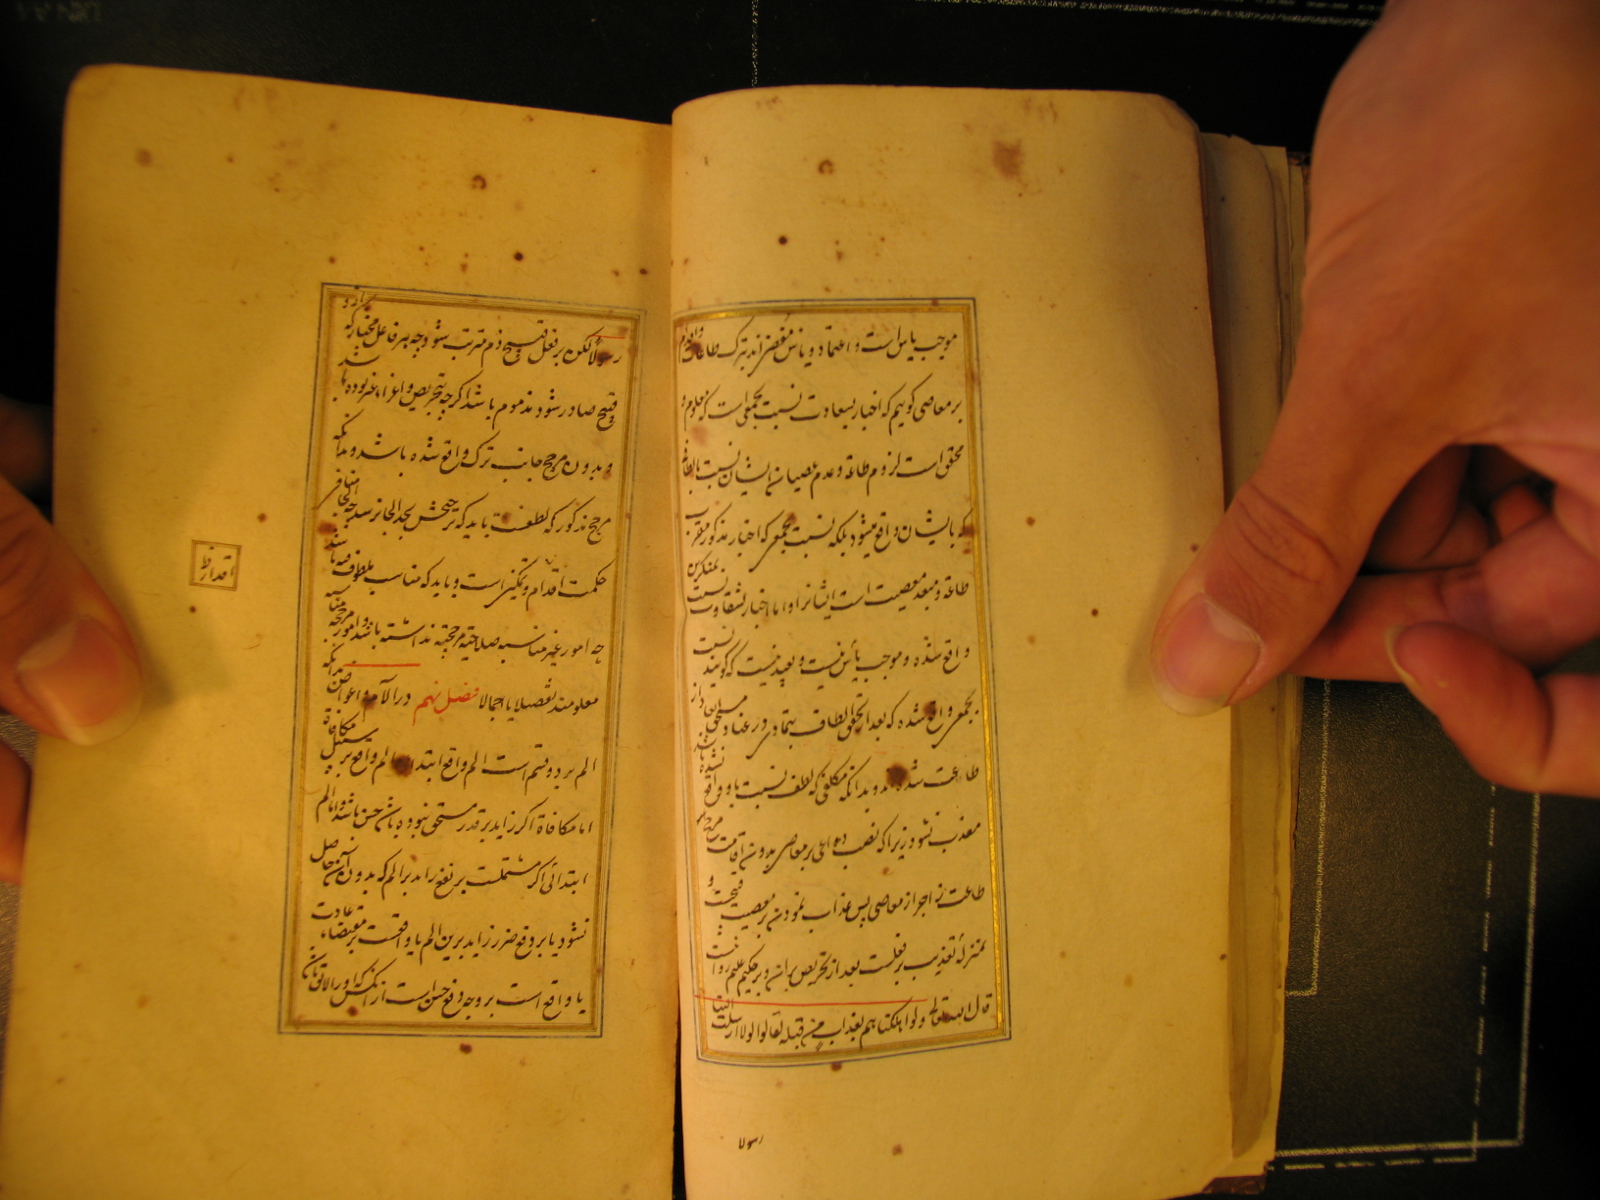 موجب یاس است و اعتماد و یاس مفضی اند بترک طاعات و اقدام
بر معاصی گوییم که اخبار بسعادت نسبت بجمعی است که معلوم و
محقق است لزوم طاعة و عدم عصیان ایشان نسبت بالطافی
که بایشان واقع میشود بلکه نسبت بجمعی که اخبار مذکور مقرب
طاعة و مبعد معصیت است ایشانرا و اما اخبار بشقاوت نسبت بمنکرین
واقع شده و موجب یأس نیست و بعید نیست که گویند نسبت
بجمعی واقع شده که بعد الحقّ الطاف بتمادی در عناد مستحق
طاعت شده و بدانکه مکلفی که لطف نسبت باو واقع نشده باشد
معذب نشود زیرا که نصب دواعی بر معاصی بدون اقامت مرجح
طاعت زاجر از معاصی پس عذاب نمودن بر معصیت و قبیحت
بمنزله تعذیب بر فعلست بعد از تحریص بران و بر حکیم علیم روا نیست
قال الله تعالی ولو انا اهلکناهم بعذاب من قبله لقالوا لولا ارسلت الینا
رسولا
رسولا لکون بر فعل قبیح ذم مترتب شود و چه هر فاعل مختار که از او
قبیح صادر شود مذموم باشد اگر چه بتحریص و اغراء غیر بوده باشد
و بدون مرجح جانب ترک واقع شده باشد و بدانکه
مرجح مذکور که لطفست باید که ترجیحش بحد الجا نرسد چه الجا منافی
حکمت اقدام و تمکین است و باید که مناسب ملطوف فیه باشد
چه امور غیر مناسبه صلاحیة مرجحیة نداشته باشد و امور مرجحه
معلومند تفصیلا یا اجمالا فصل نهم در آلام و اعواض بدانکه
الم بر دو قسم است الم واقع ابتداء و الم واقع بر سبیل مکافاة
اما مکافاة اگر زاید بر قدر مستحق نبوده باشد حسن باشد و اما الم
ابتدائی اگر مشتملست بر نفع زاید بر الم که بدون آن حاصل
نشود یا بر دفع ضرر زاید برین الم یا واقعست بر مقتضاء عادت
یا واقع است بر وجه دفع حسن است از انکس که او را لایق بآن
اقدار ظ